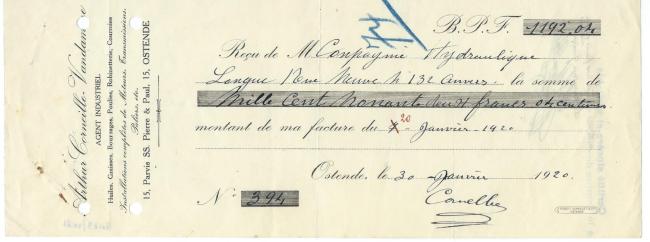 Arthur Corneille-Vandamme
AGENT INDUSTRIEL
Huiles, Graisses, Bourrages, Poulies, Robinetterie, Courroies
Installations complètes de Moteurs, Transmissions,
Paliers, etc.
15, Parvis SS. Pierre & Paul, 15, OSTENDE
B. P. F. 1192,04
Reçu de M Compagnie Hydraulique
Longue Rue Neuve N 132 Anvers la somme de
Mille Cent Nonante deux francs 04 centimes
montant de ma facture du 20 Janvier - 1920
Ostende, le 30 Janvier 1920.
N° 394